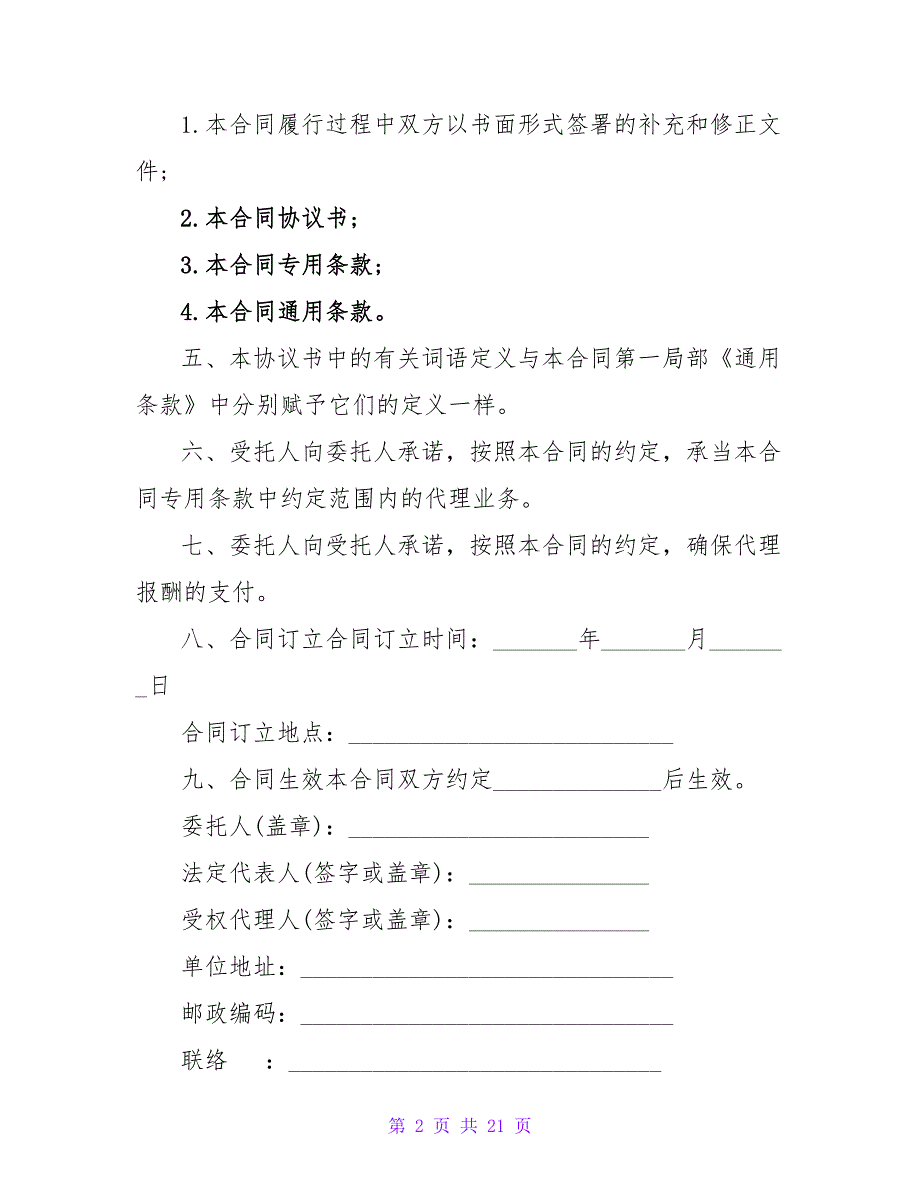 1.本合同履行过程中双方以书面形式签署的补充和修正文
件;
2.本合同协议书;
3.本合同专用条款;
4.本合同通用条款。
五、本协议书中的有关词语定义与本合同第一局部《通用
条款》中分别赋予它们的定义一样。
六、受托人向委托人承诺，按照本合同的约定，承当本合
同专用条款中约定范围内的代理业务。
七、委托人向受托人承诺，按照本合同的约定，确保代理
报酬的支付。
八、合同订立合同订立时间：_______年_______月______
_日
合同订立地点：___________________________
九、合同生效本合同双方约定______________后生效。
委托人(盖章)：_________________________
法定代表人(签字或盖章)：_______________
受权代理人(签字或盖章)：_______________
单位地址：_______________________________
邮政编码：_______________________________
联络 ：_______________________________
第 2 页 共 21 页